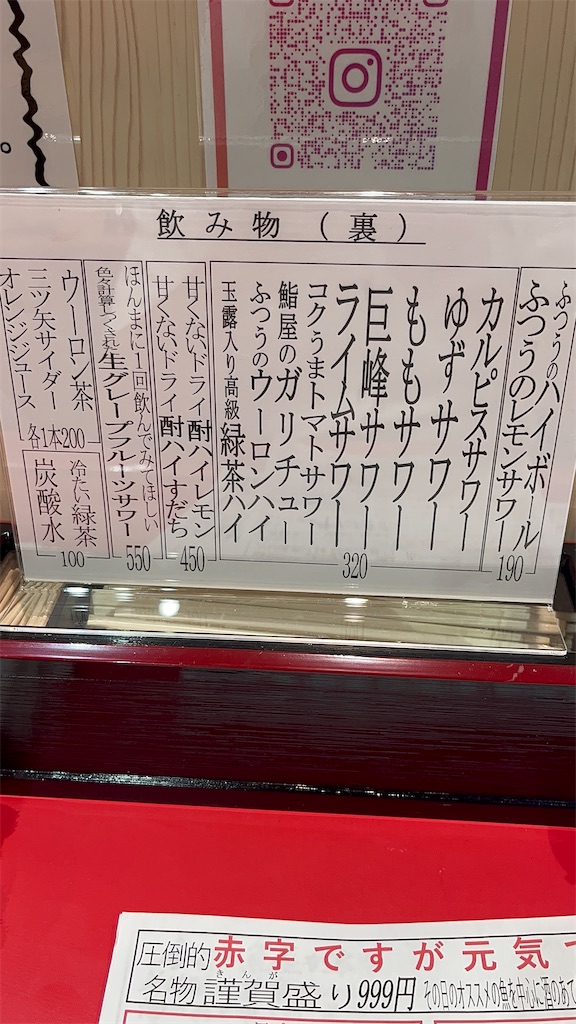 飲み物（裏）
ふつうのハイボール
ふつうのレモンサワー
190
カルピスサワー
ゆずサワー
ももサワー
巨峰サワー
ライムサワー
コクうまトマトサワー
鮨屋のガリチュー
ふつうのウーロンハイ
玉露入り高級緑茶ハイ
320
甘くないドライ酎ハイレモン
甘くないドライ酎ハイすだち
450
ほんまに1回飲んでみてほしい
生グレープフルーツサワー
550
ウーロン茶
三ツ矢サイダー
オレンジジュース
各1本200
冷たい緑茶
炭酸水
100
圧倒的赤字ですが元気で
名物 謹賀盛り 999円 その日のオススメの魚を中心に酒のあて
きんが